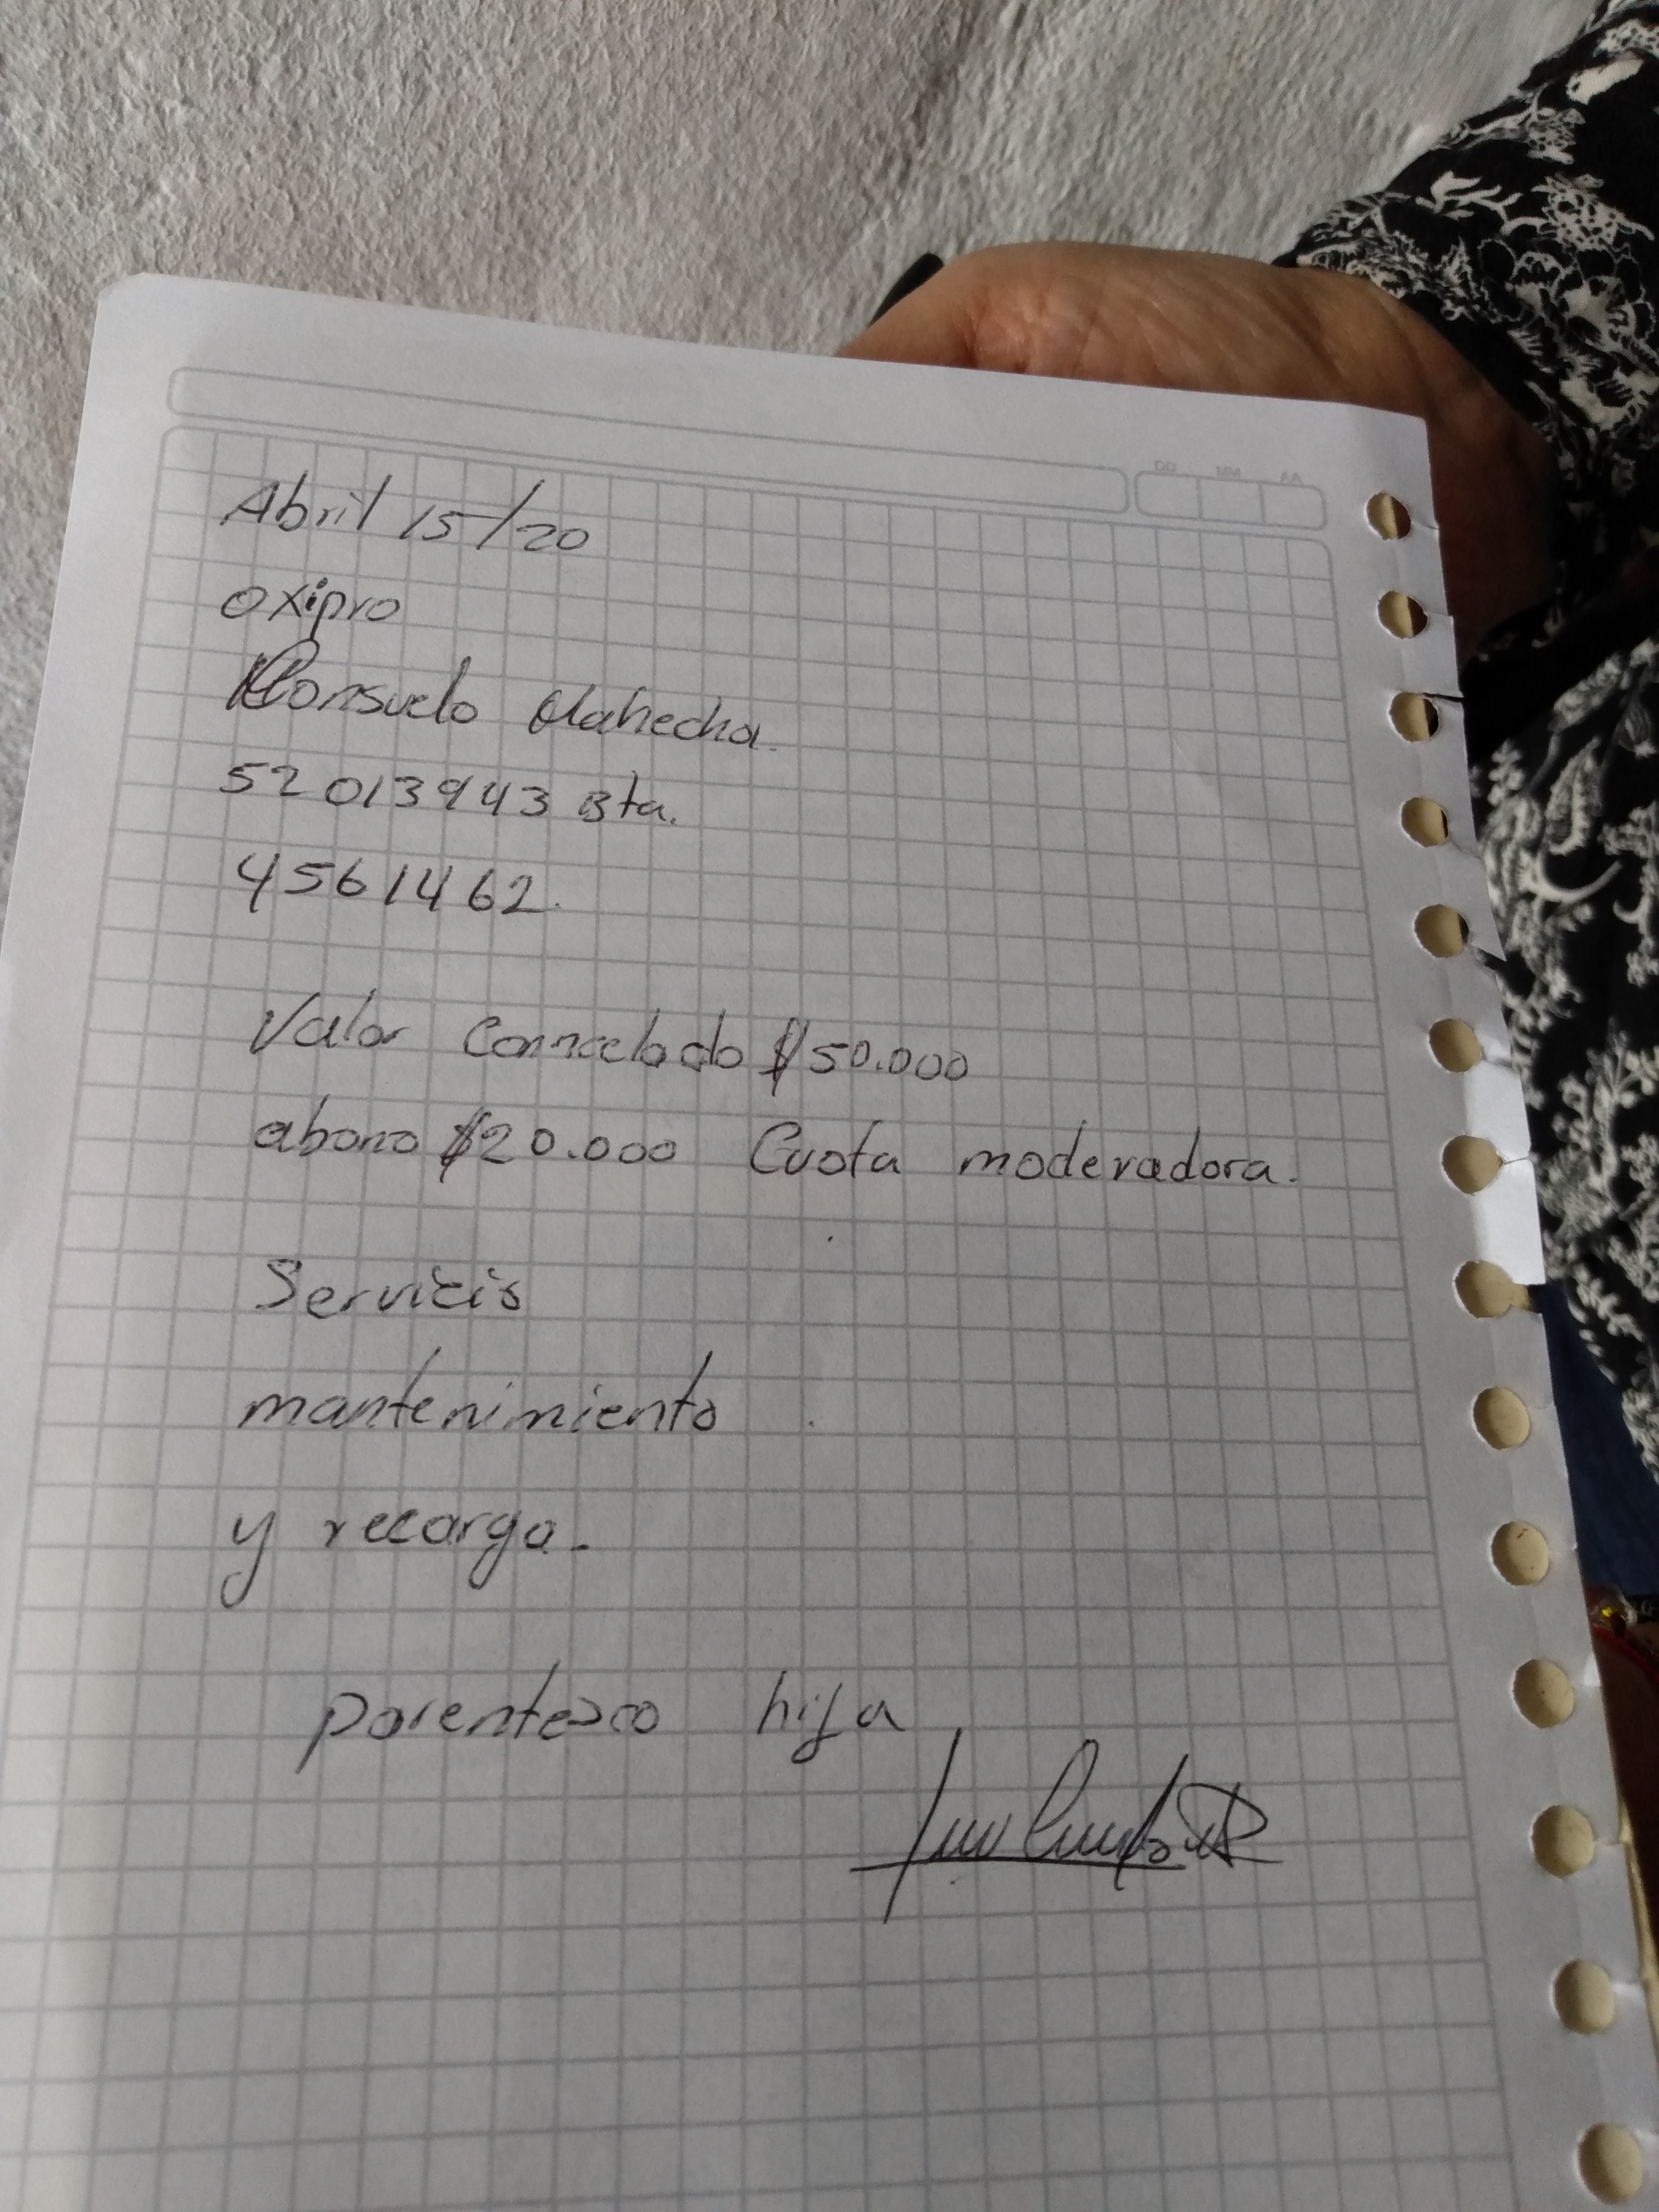 Abril 15/20
oxipro
Consuelo Mahecha.
52013943 Bta.
4561462.
Valor Cancelado $50.000
abono $20.000 Cuota moderadora.
Servicis
mantenimiento
y recarga.
parentesco hija
DD MM AA